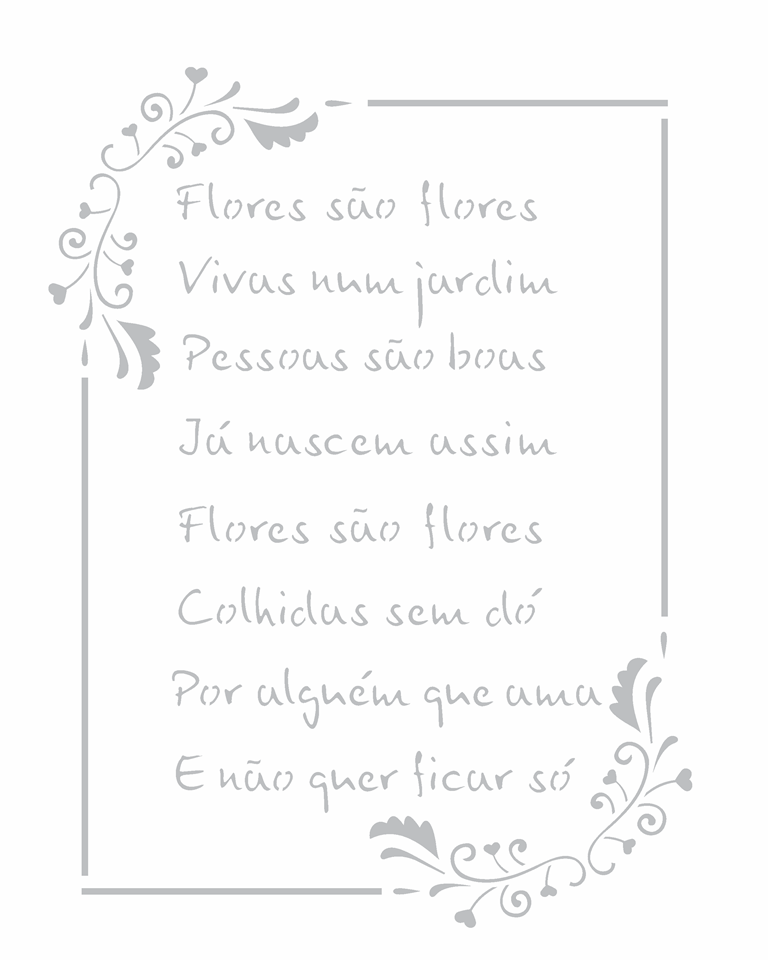 Flores são flores
Vivas num jardim
Pessoas são boas
Já nascem assim
Flores são flores
Colhidas sem dó
Por alguém que ama
E não quer ficar só